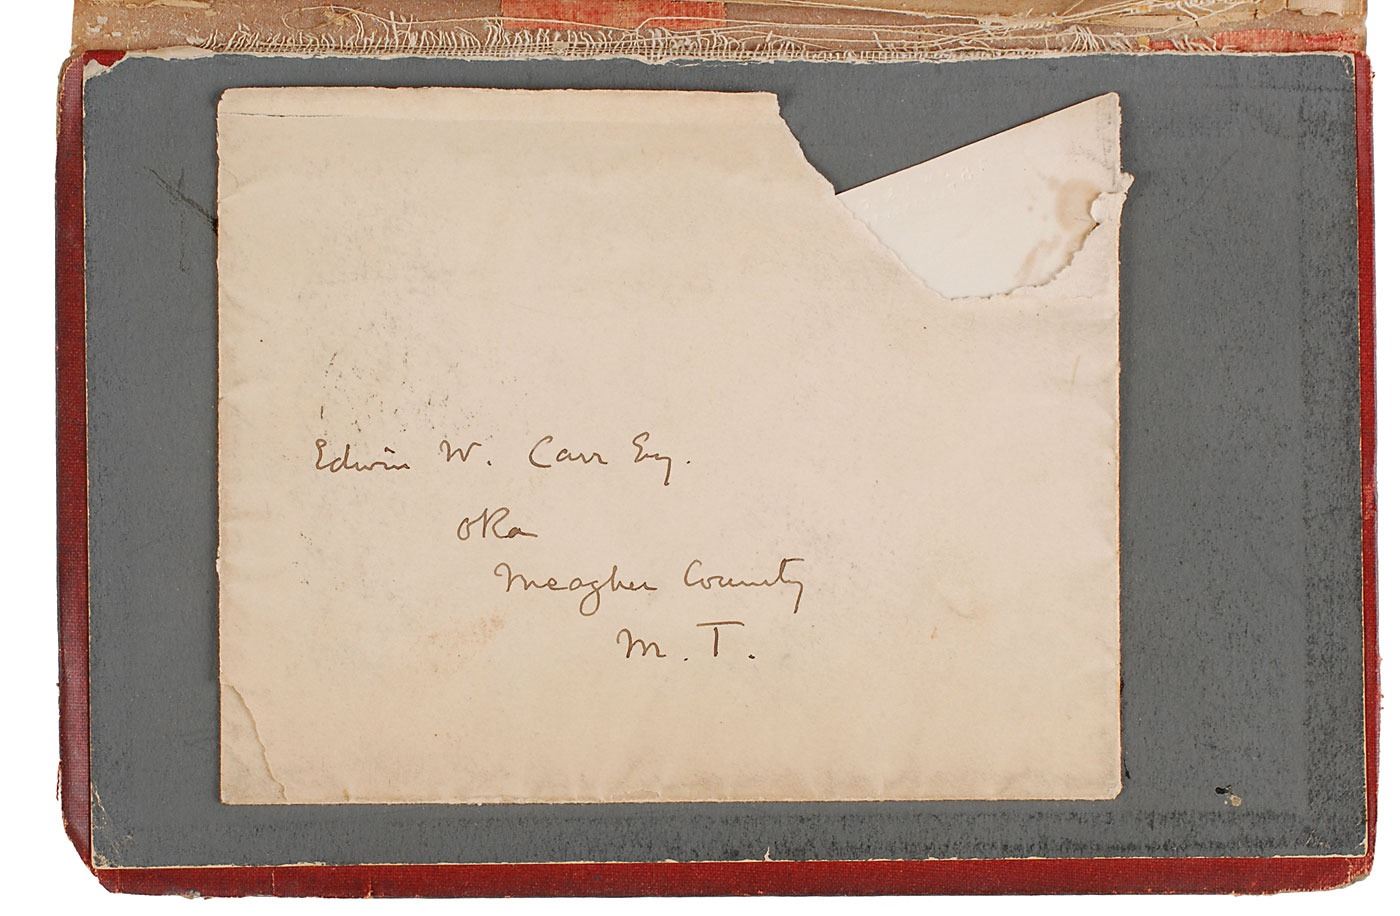 Edwin W. Carr Esq.
Oka
Meagher County
M. T.